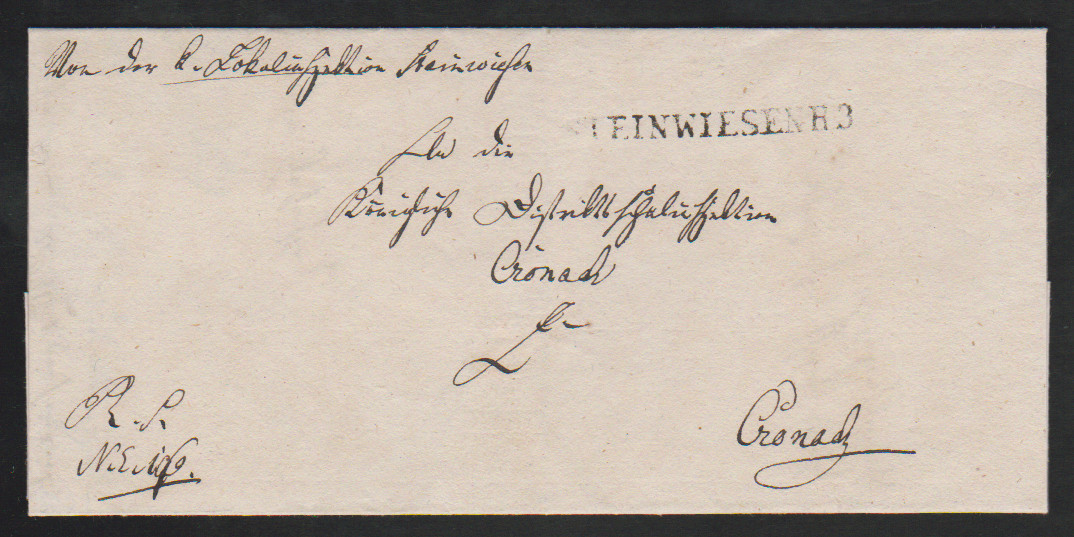 Von der k. Lokalinspektion Steinwiesen
STEINWIESEN R3
An die
Königliche Distriktsschulinspektion
Cronach
R. S.
Cronach